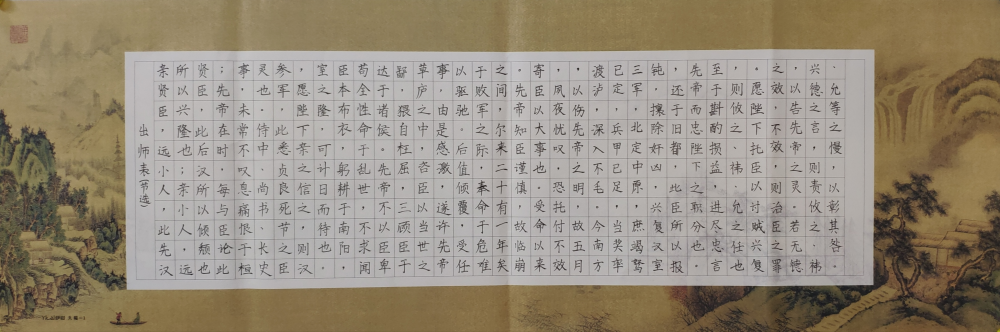 出师表(节选)
亲贤臣，远小人，此先汉
所以兴隆也；亲小人，远
贤臣，此后汉所以倾颓也
；先帝在时，每与臣论此
事，未常不叹息痛恨于桓
灵也。侍中、尚书、长史
参军，此悉贞良死节之臣
，愿陛下亲之信之，则汉
室之隆，可计日而待也。
臣本布衣，躬耕于南阳，
苟全性命于乱世，不求闻
达于诸侯。先帝不以臣卑
鄙，猥自枉屈，三顾臣于
草庐之中，咨臣以当世之
事，由是感激，遂许先帝
以驱驰。后值倾覆，受任
于败军之际，奉命于危难
之间，尔来二十有一年矣
。先帝知臣谨慎，故临崩
寄臣以大事也。受命以来
，夙夜忧叹，恐托付不效
，以伤先帝之明，故五月
渡泸，深入不毛。今南方
已定，兵甲已足，当奖率
三军，北定中原，庶竭驽
钝，攘除奸凶，兴复汉室
，还于旧都，此臣所以报
先帝而忠陛下之职分也。
至于斟酌损益，进尽忠言
，则攸之、祎、允之任也
。愿陛下托臣以讨贼兴复
之效，不效，则治臣之罪
，以告先帝之灵。若无德
兴德之言，则责攸之、祎
、允等之慢，以彰其咎。